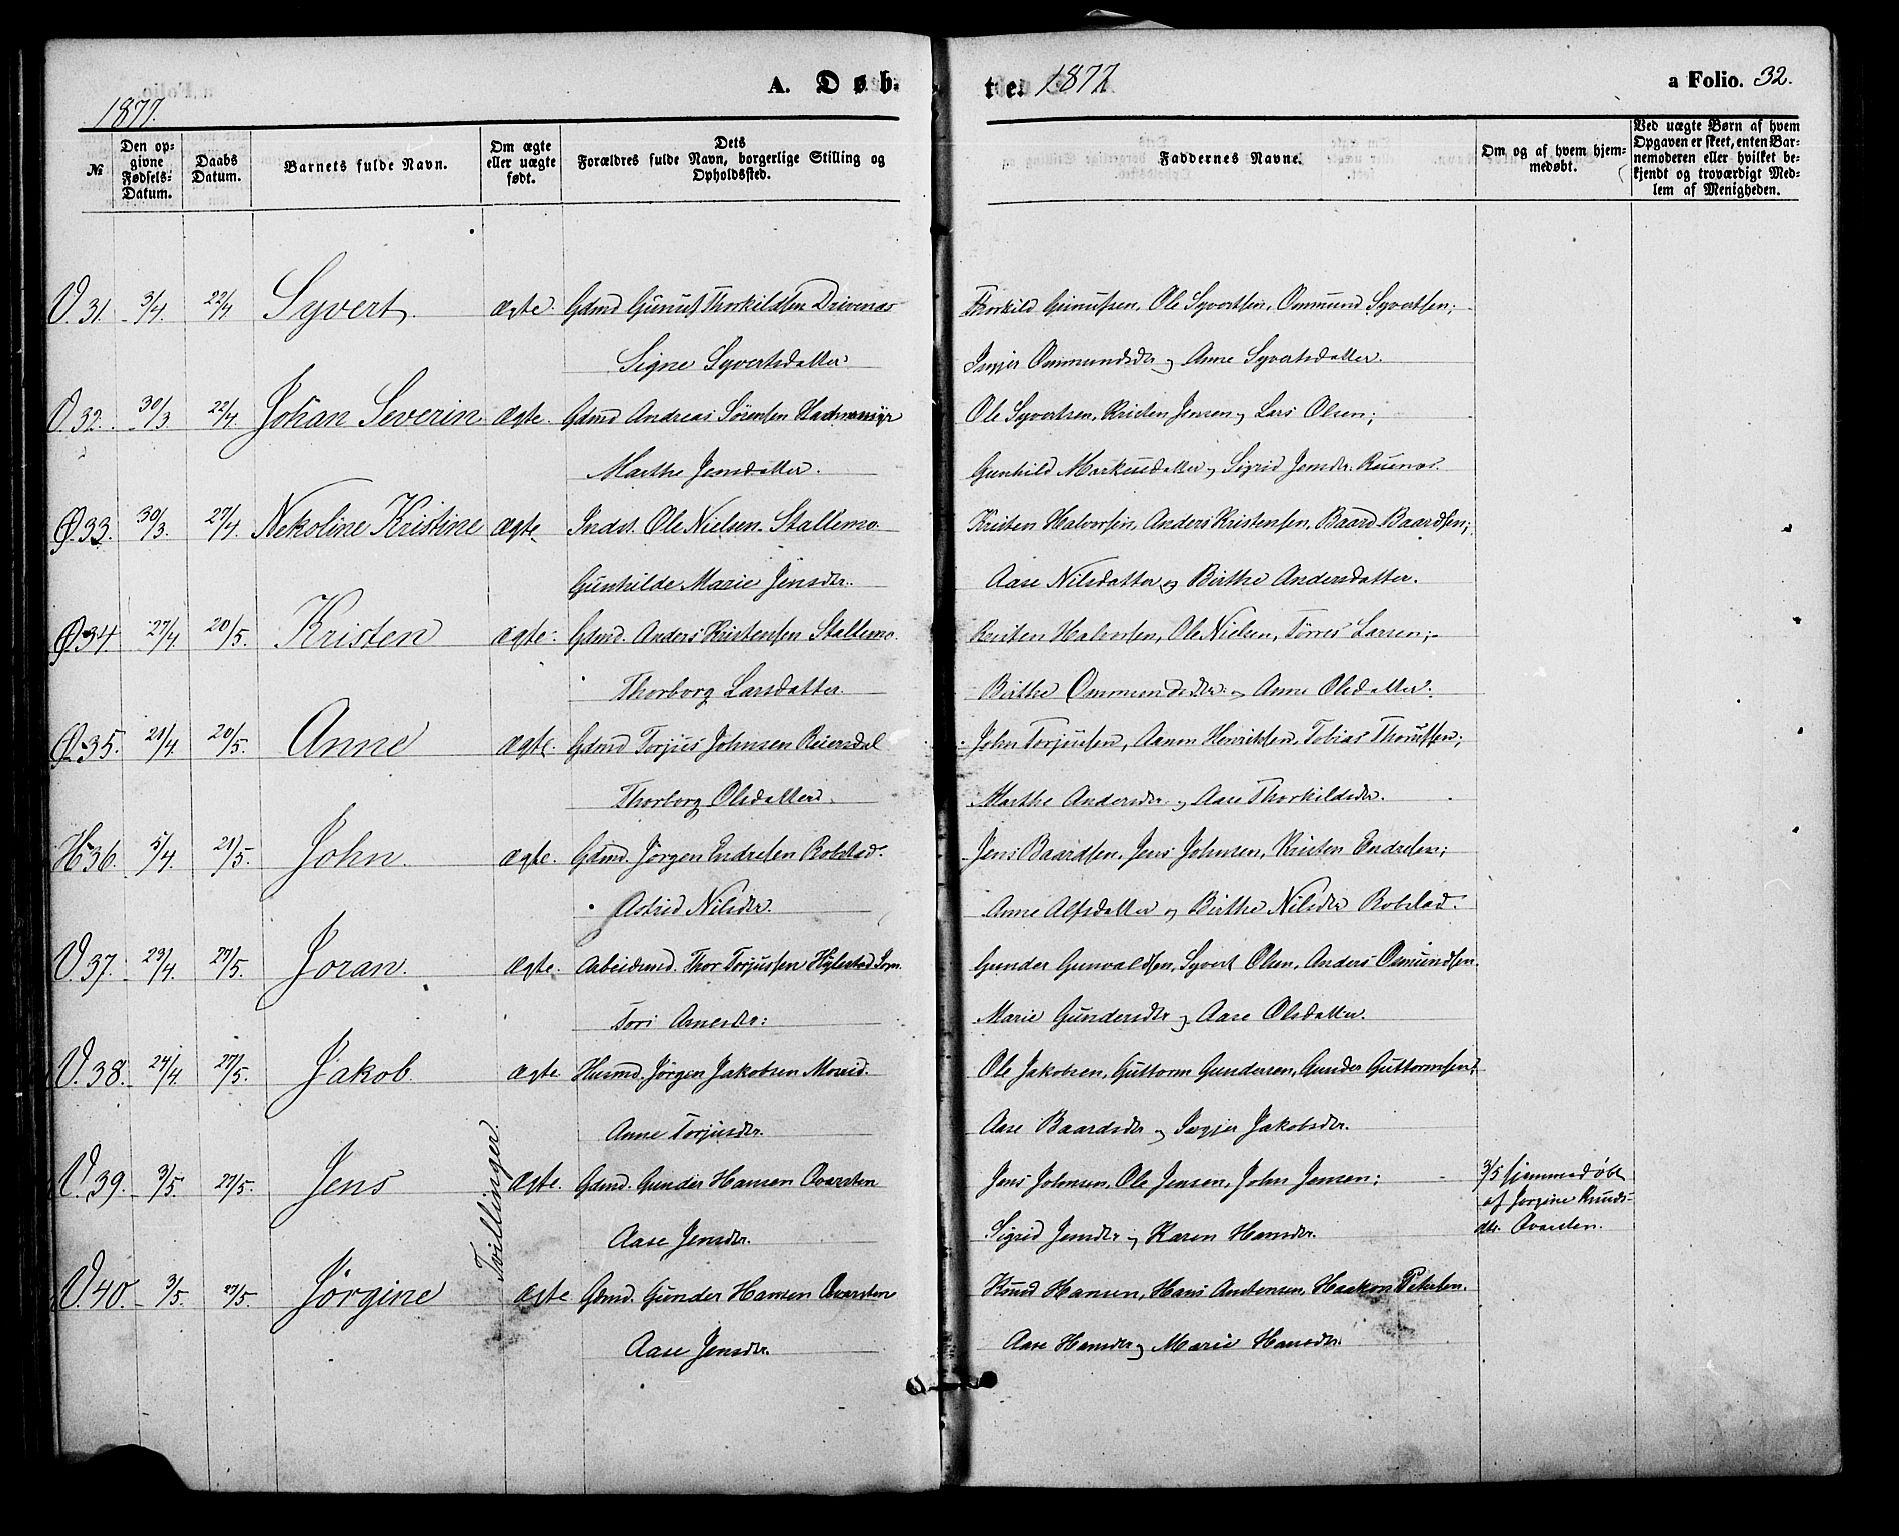 A. Døb-
te. 1877
a Folio. 32.
1877.
№
Den op-
givne
Fødsels-
Datum.
Daabs
Datum.
Barnets fulde Navn.
Om ægte
eller uægte
født.
Dets
Forældres fulde Navn, borgerlige Stilling og
Opholdssted.
Faddernes Navne.
Om og af hvem hjem-
medøbt.
Ved uægte Børn af hvem
Opgaven er skeet, enten Bar-
nemoderen eller hvilket be-
kjendt og troværdigt Med-
lem af Menigheden.
V. 31. 3/4. 22/4 Syvert. ægte. Gdmd Gunuf Thorkildsen Drivenæs Thorkild Gunufsen, Ole Syvertsen, Ommund Syvertsen;
Signe Syvertsdatter. Ommundsdr og Anne Syvertsdatter.
V. 32. 30/3 22/4. Johan Severin ægte. Gdmd Andreas Sørensen Ole Syvertsen, Kristen Jensen og Lars Olsen;
Marthe Jensdatter. Gunhild Markusdatter og Sigrid Jensdr.
Ø. 33. 30/3. 27/4. Nekoline Kristine ægte. Indst. Ole Nielsen Stallemo Kristen Halvorsen, Anders Kristensen, Baard Baardsen;
Gunhilde Marie Jensdr. Aase Nilsdatter og Birthe Andersdatter.
Ø 34. 27/4. 20/5. Kristen ægte. Gdmd. Anders Kristensen Stallemo. Kristen Halvorsen, Ole Nielsen, Tørres Larsen;
Thorborg Larsdatter. Birthe Ommundsdtr. og Anne Olsdatter.
Ø. 35. 21/4. 20/5. Anne ægte. Gdmd Torjus Johnsen Reiersdal John Torjussen, Aanon Henriksen, Tobias
Thorborg Olsdatter. Marthe Andersdr. og Aase Thorkildsdr.
H. 36. 5/4. 21/5. John. ægte. Gdmd. Jørgen Endresen Robstad. Jens Baardsen, Jens Johnsen, Kristen Endresen;
Astrid Nilsdr. Anne Alfsdatter og Birthe Nilsdr Robstad.
V. 37. 23/4. 27/5. Joran. ægte. Arbeidsmd. Thor Torjussen Hylestad Gunder Gunvaldsen, Syvert Olsen, Anders Osmundsen.
Tori Arnesdr: Marie Gundersdtr og Aase Olsdatter.
V. 38. 24/4. 27/5. Jakob. ægte. Husmd. Jørgen Jakobsen Ole Jakobsen, Guttorm Gundersen, Gunder Guttormsen;
Anne Torjusdr. Aase Baardsdr og Jakobsdr.
V. 39. 3/5. 27/5. Jens Tvillinger. ægte. Gdmd. Gunder Hansen Qvarsten Jens Johnsen, Ole Jensen, John Jensen; 3/5 hjemmedøbt
af Jørgine Knuds-
dtr. Qvarsten.
Aase Jensdr. Sigrid Jensdtr og Karen Hansdr.
V. 40. 3/5. 27/5. Jørgine ægte Gdmd. Gunder Hansen Qvarsten Knud Hansen, Hans Haakon Petersen.
Aase Jensdr. Aase Hansdr og Marie Hansdr.